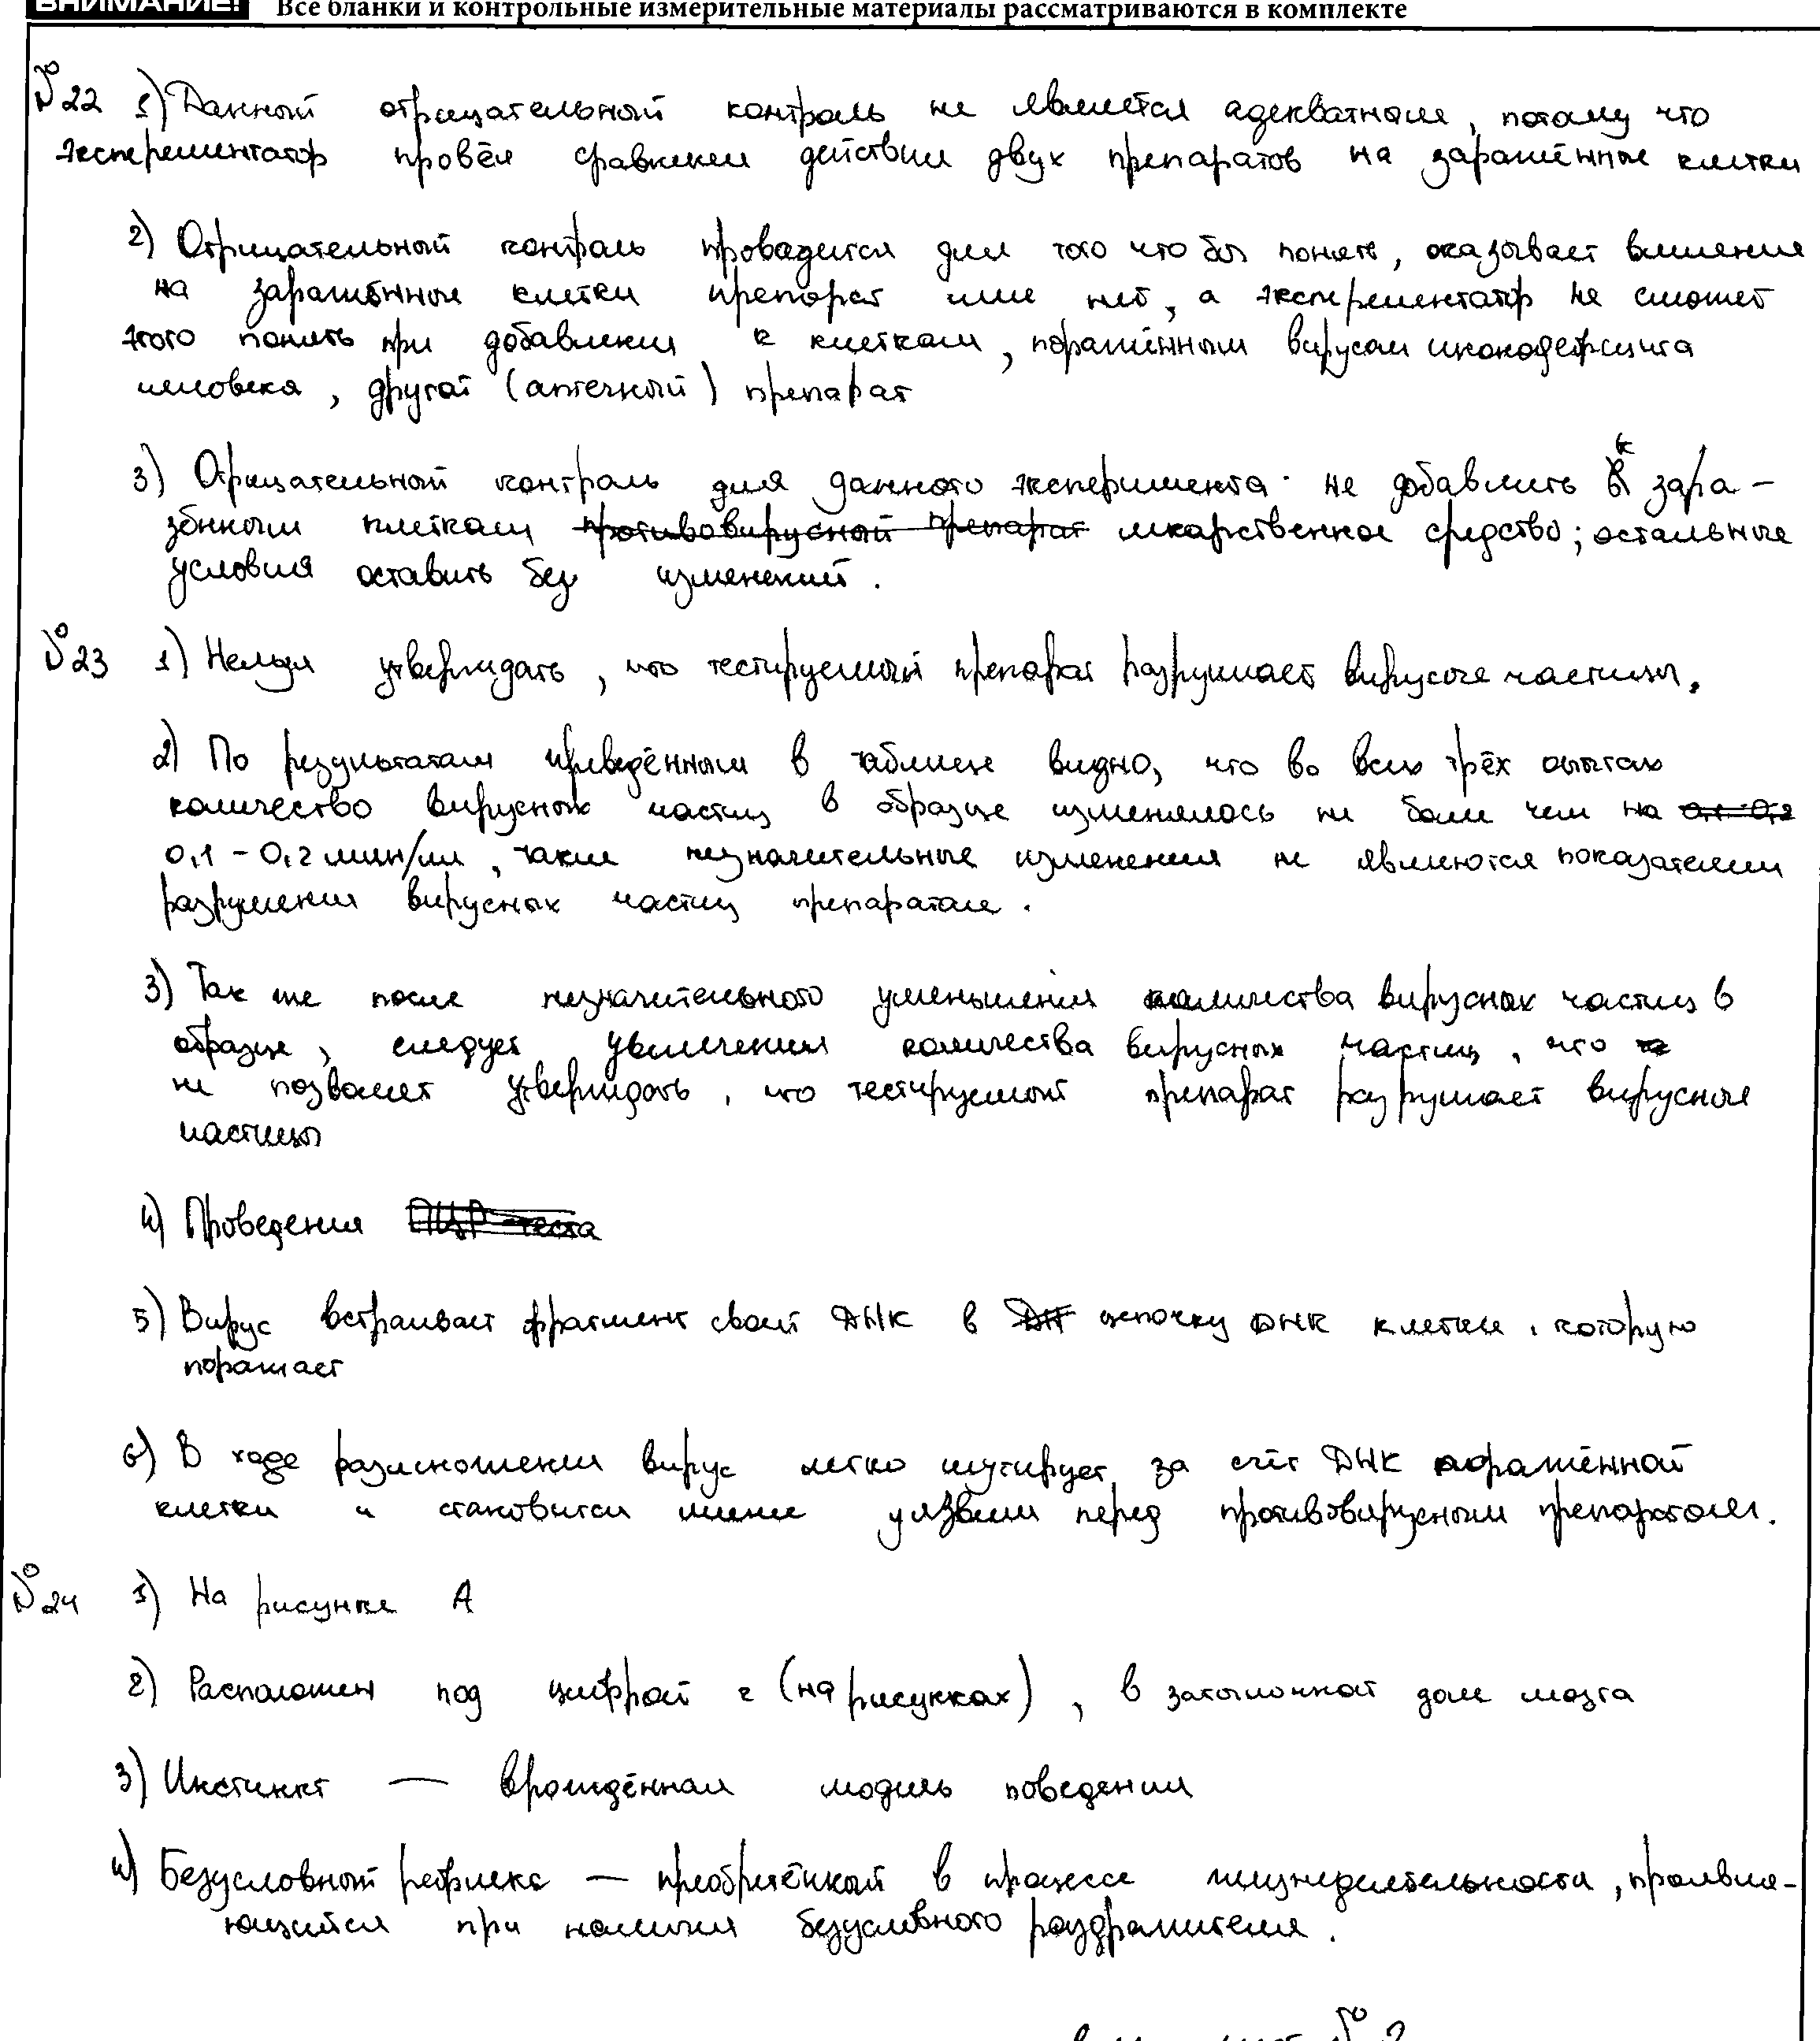 ВНИМАНИЕ! Все бланки и контрольные измерительные материалы рассматриваются в комплекте
№22 1) Данный отрицательный контроль не является адекватным, потому что
эксперементатор провёл сравнение действии двух препаратов на заражённые клетки
2) Отрицательный контроль проводится для того что бы понять, оказывает влияние
на заражённые клетки препарат или нет, а эксперементатор не сможет
этого понять при добавлении к клеткам, поражённым вирусом имонодефицита
человека, другой (аптечный) препарат
3) Отрицательный контроль для данного эксперимента: не добавлять к зара-
жённым клеткам противовирусный препарат лекарственное средство; остальные
условия оставить без изменений.
№23 1) Нельзя утверждать, что тестируемый препарат разрушает вирусные частицы.
2) По результатам приведённым в таблице видно, что во всех трёх опытах
количество вирусных частиц в образце изменялось не более чем на 0,1-0,2
0,1-0,2 млн/мл, такие незначительные изменения не являются показателем
разрушения вирусных частиц препаратом.
3) Так же после незначительного уменьшения количества вирусных частиц в
образце, следует увеличения количества вирусных частиц, что
не позволяет утверждать, что тестируемый препарат разрушает вирусные
частицы
4) Проведения ПЦР-теста
5) Вирус встраивает фрагмент своей ДНК в ДН цепочку ДНК клетки, которую
поражает
6) В ходе размножения вирус легко мутирует за счёт ДНК поражённой
клетки и становится менее уязвим перед противовирусным препаратом.
№24 1) На рисунке А
2) Расположен под цифрой 2 (на рисунках), в затылочной доле мозга
3) Инстинкт — врождённая модель поведения
4) Безусловный рефлекс — преобретённый в процессе жизнедеятельности, проявля-
ющийся при наличия безусловного раздражителя.